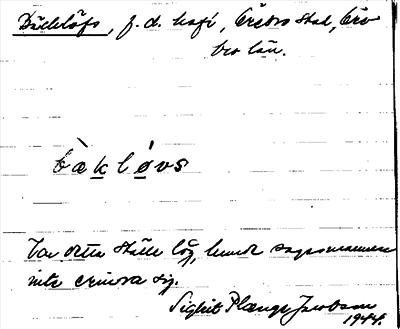 Bäcklöfs, f. d. kafé, Örebro stad, Öre-
bro län.
bæ̀klóvs
Var detta ställe låg, kunde sagesmannen
inte erinra sig.
Sigbrit Plænge Jacobson
1944.